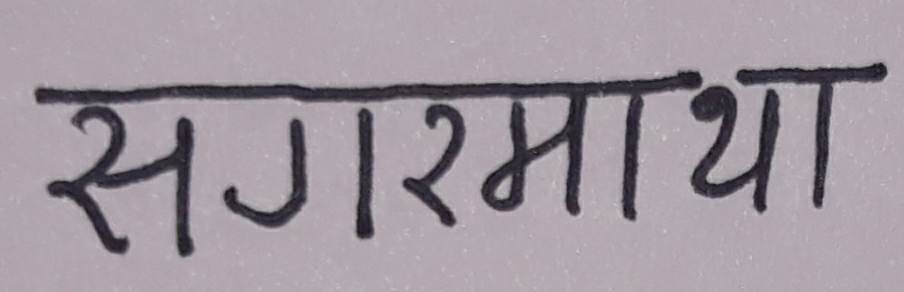 सगरमाथा